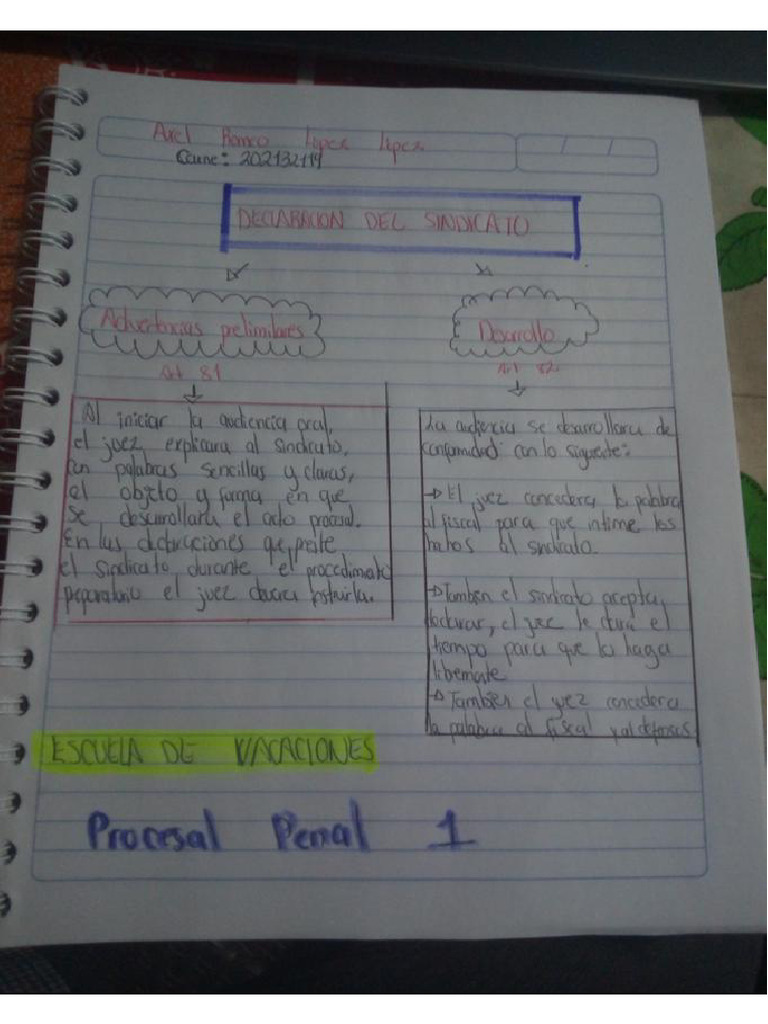 Axel Romeo López López
Carne: 202132119
DECLARACION DEL SINDICATO
Advertencias pelimilares
Art 81
Al iniciar la audiencia oral,
el juez explicara al sindicato,
en palabras sencillas y claras,
el objeto y forma en que
se desarrollara el acto procesal.
En las declaraciones que preste
el sindicato durante el procedimiento
preparatorio el juez debera instruirla.
Desarrollo
Art 82
La audiencia se desarrollara de
conformidad: con lo siguiente:
→ El juez concedera la palabra
al fiscal para que intime los
hechos al sindicato.
→ Tambien el sindicato acepta
declarar, el juez le dara el
tiempo para que lo haga
libremate
→ Tambien el juez concedera
la palabra al fiscal y al defensor
ESCUELA DE VACACIONES
Procesal Penal 1